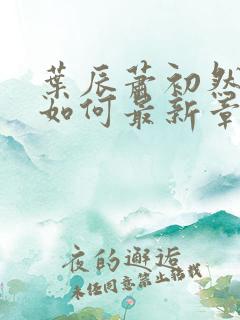 葉辰蕭初然
如何最新章
夜的邂逅
未经同意禁止转载